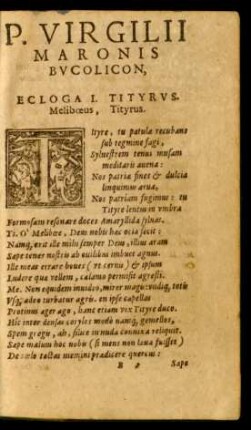 P. VIRGILII
MARONIS
BVCOLICON,
ECLOGA I. TITYRVS.
Melibœus, Tityrus.
Tityre, tu patulæ recubans
sub tegmine fagi,
Sylvestrem tenui musam
meditaris auena:
Nos patriæ fines & dulcia
linquimus arua,
Nos patriam fugimus: tu
Tityre lentus in vmbra
Formosam resonare doces Amaryllida syluas.
Ti. O' Melibœe, Deus nobis hæc ocia fecit:
Namq; erit ille mihi semper Deus, illius aram
Sæpe tener nostris ab ouilibus imbuet agnus.
Ille meas errare boues (vt cernis) & ipsum
Ludere quæ vellem, calamo permisit agresti.
Me. Non equidem inuideo, miror magis: vndiq; totis
Vsq; adeo turbatur agris. en ipse capellas
Protinus æger ago, hanc etiam vix Tityre duco.
Hic inter densas corylos modò namq; gemellos,
Spem gregis, ah, silice in nuda connixa reliquit.
Sæpe malum hoc nobis (si mens non læua fuisset)
De cœlo tactas memini prædicere quercus:
B 2 Sæpe